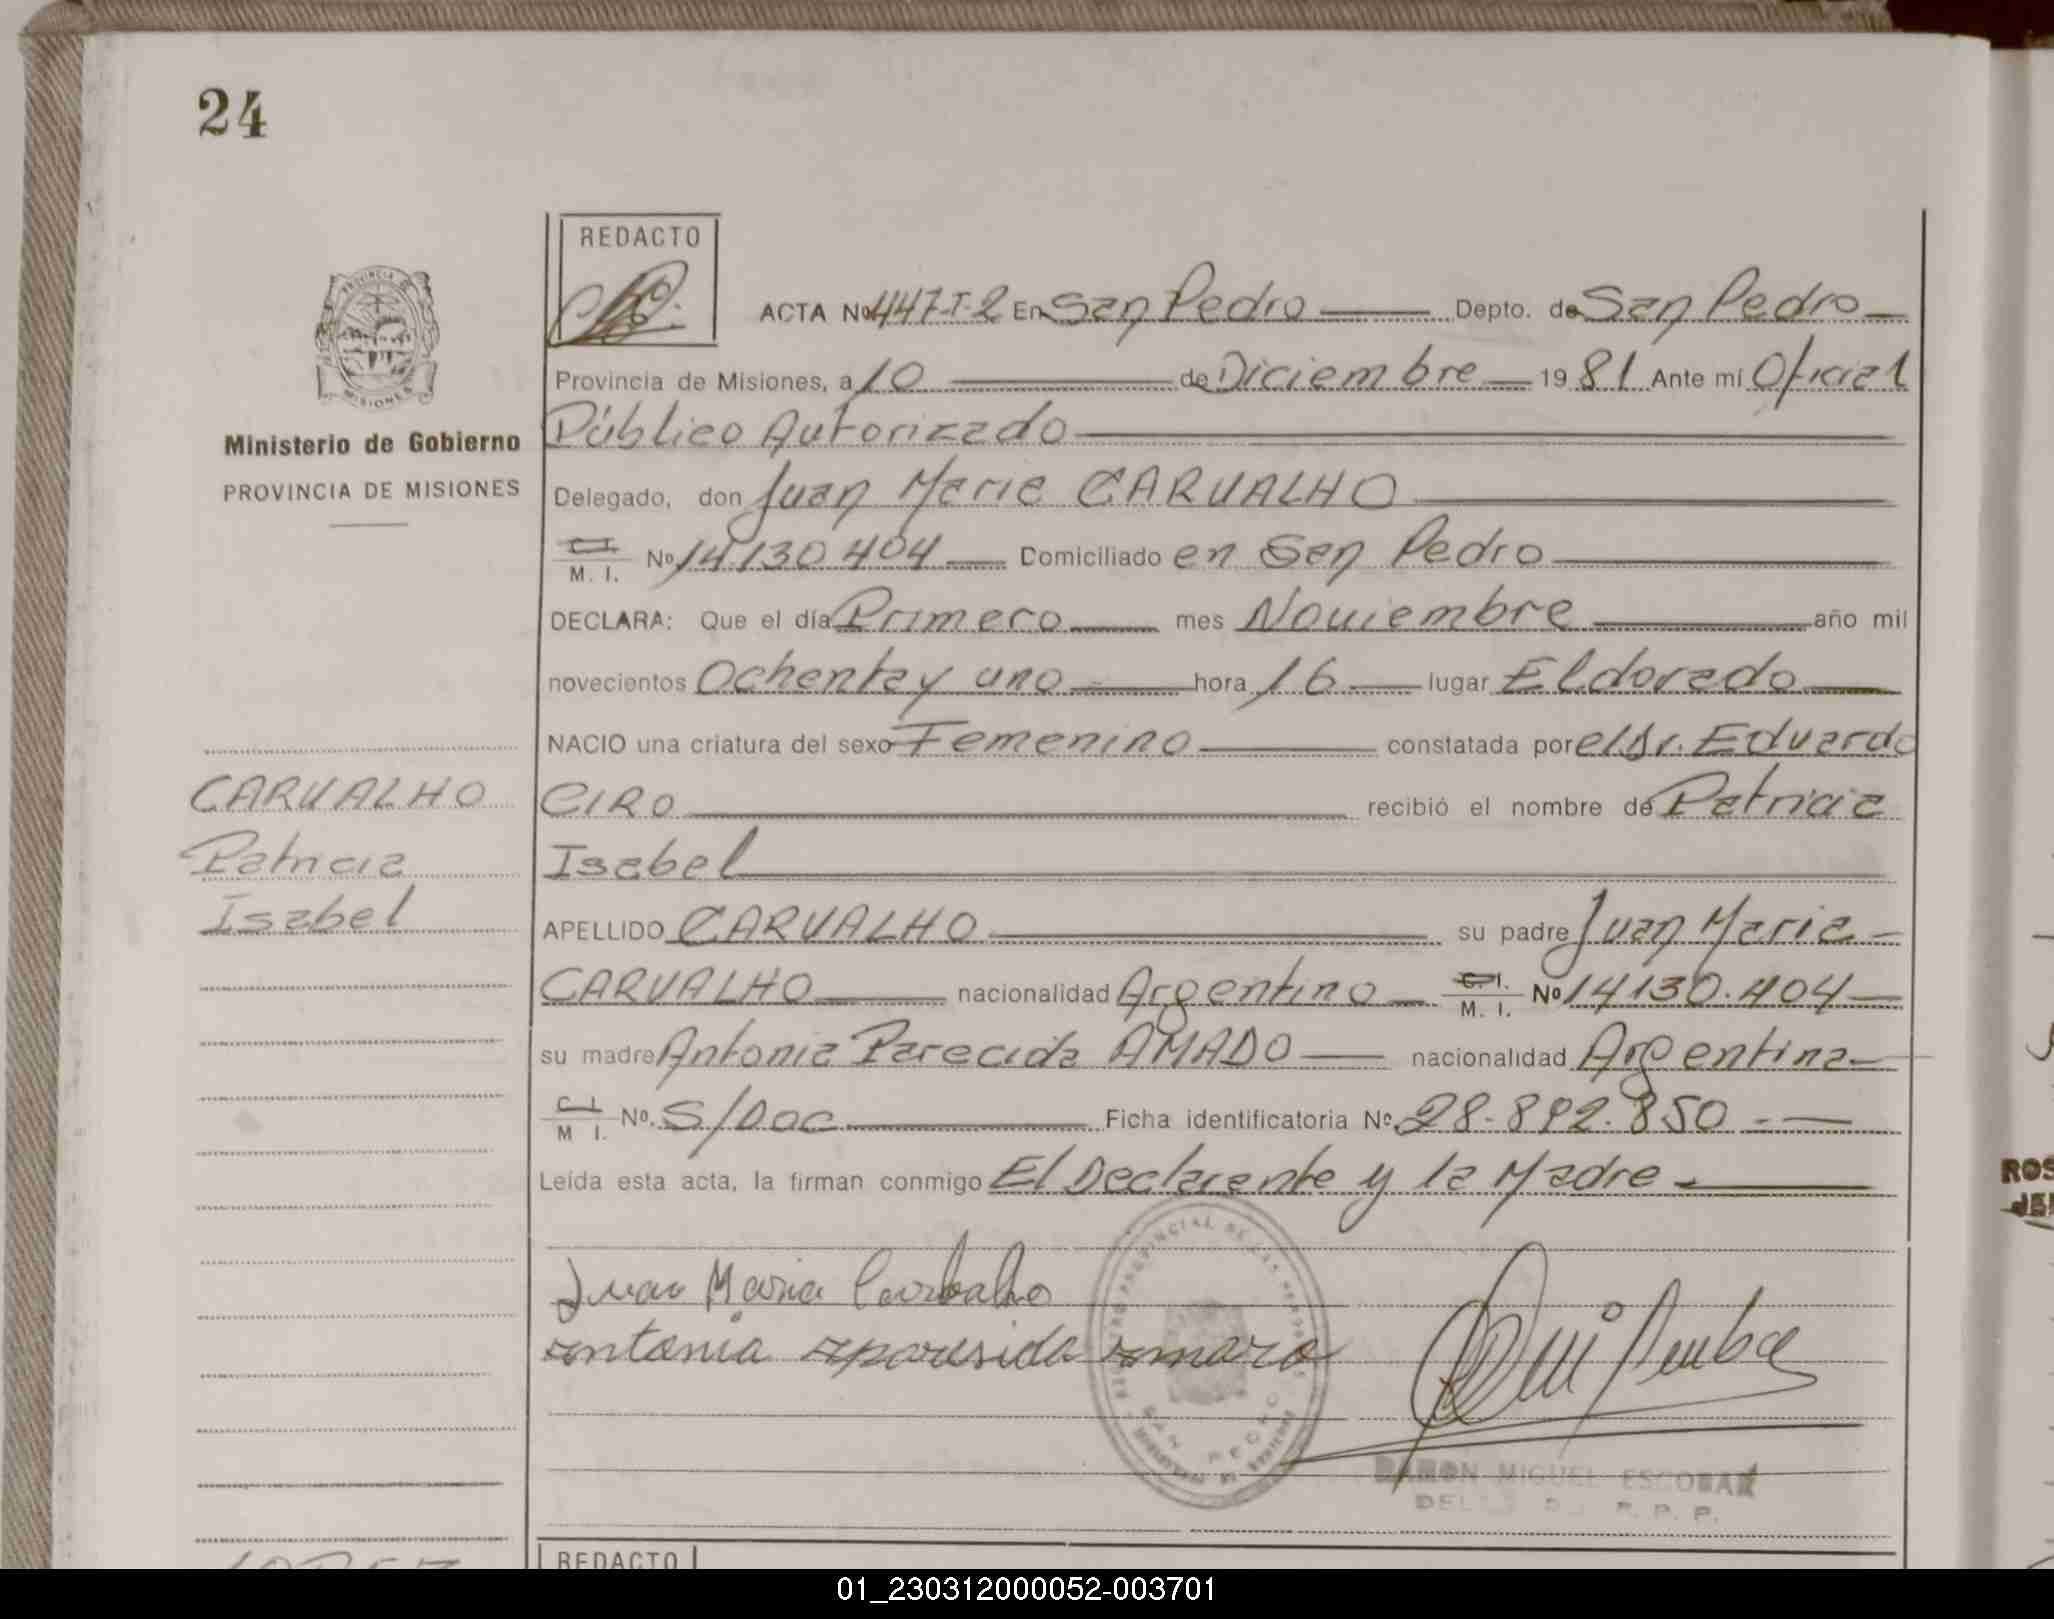 24
REDACTO
ACTA Nº 447-T-2 En San Pedro Depto. de San Pedro
Provincia de Misiones, a 10 de Diciembre 1981 Ante mi Oficial
Ministerio de Gobierno
Público Autorizado
PROVINCIA DE MISIONES
Delegado, don Juan Maria CARVALHO
C.I. M. I. Nº 14.130.404 Domiciliado en San Pedro
DECLARA: Que el día Primero mes Noviembre año mil
novecientos Ochenta y uno hora 16 lugar Eldorado
NACIO una criatura del sexo Femenino constatada por el Dr. Eduardo
CARVALHO
CIRO recibió el nombre de Patricia
Patricia
Isabel
Isabel
APELLIDO CARVALHO su padre Juan Maria
CARVALHO nacionalidad Argentino C.I. M. I. Nº 14.130.404
su madre Antonia Parecida AMADO nacionalidad Argentina
C.I. M I. Nº. S/Doc Ficha identificatoria Nº 28.892.850
Leída esta acta, la firman conmigo El Declarante y la Madre
Juan Maria Carbalho
antonia aparesida amaro
SAN PEDRO
RAMON MIGUEL ESCOBAR
REDACTO
ROS
01_230312000052-003701